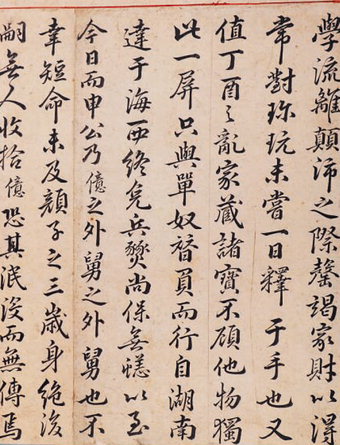 學流離顛沛之際罄竭家財以得
常對珎玩未嘗一日釋于手也又
值丁酉之亂家藏諸寶不顧他物獨
此一屏只與單奴替負而行自湖南
達于海西終免兵燹尚保無恙以至
今日而申公乃億之外舅之外舅也不
幸短命未及顔子之三歲身絶後
嗣無人收拾億恐其泯没而無傳焉